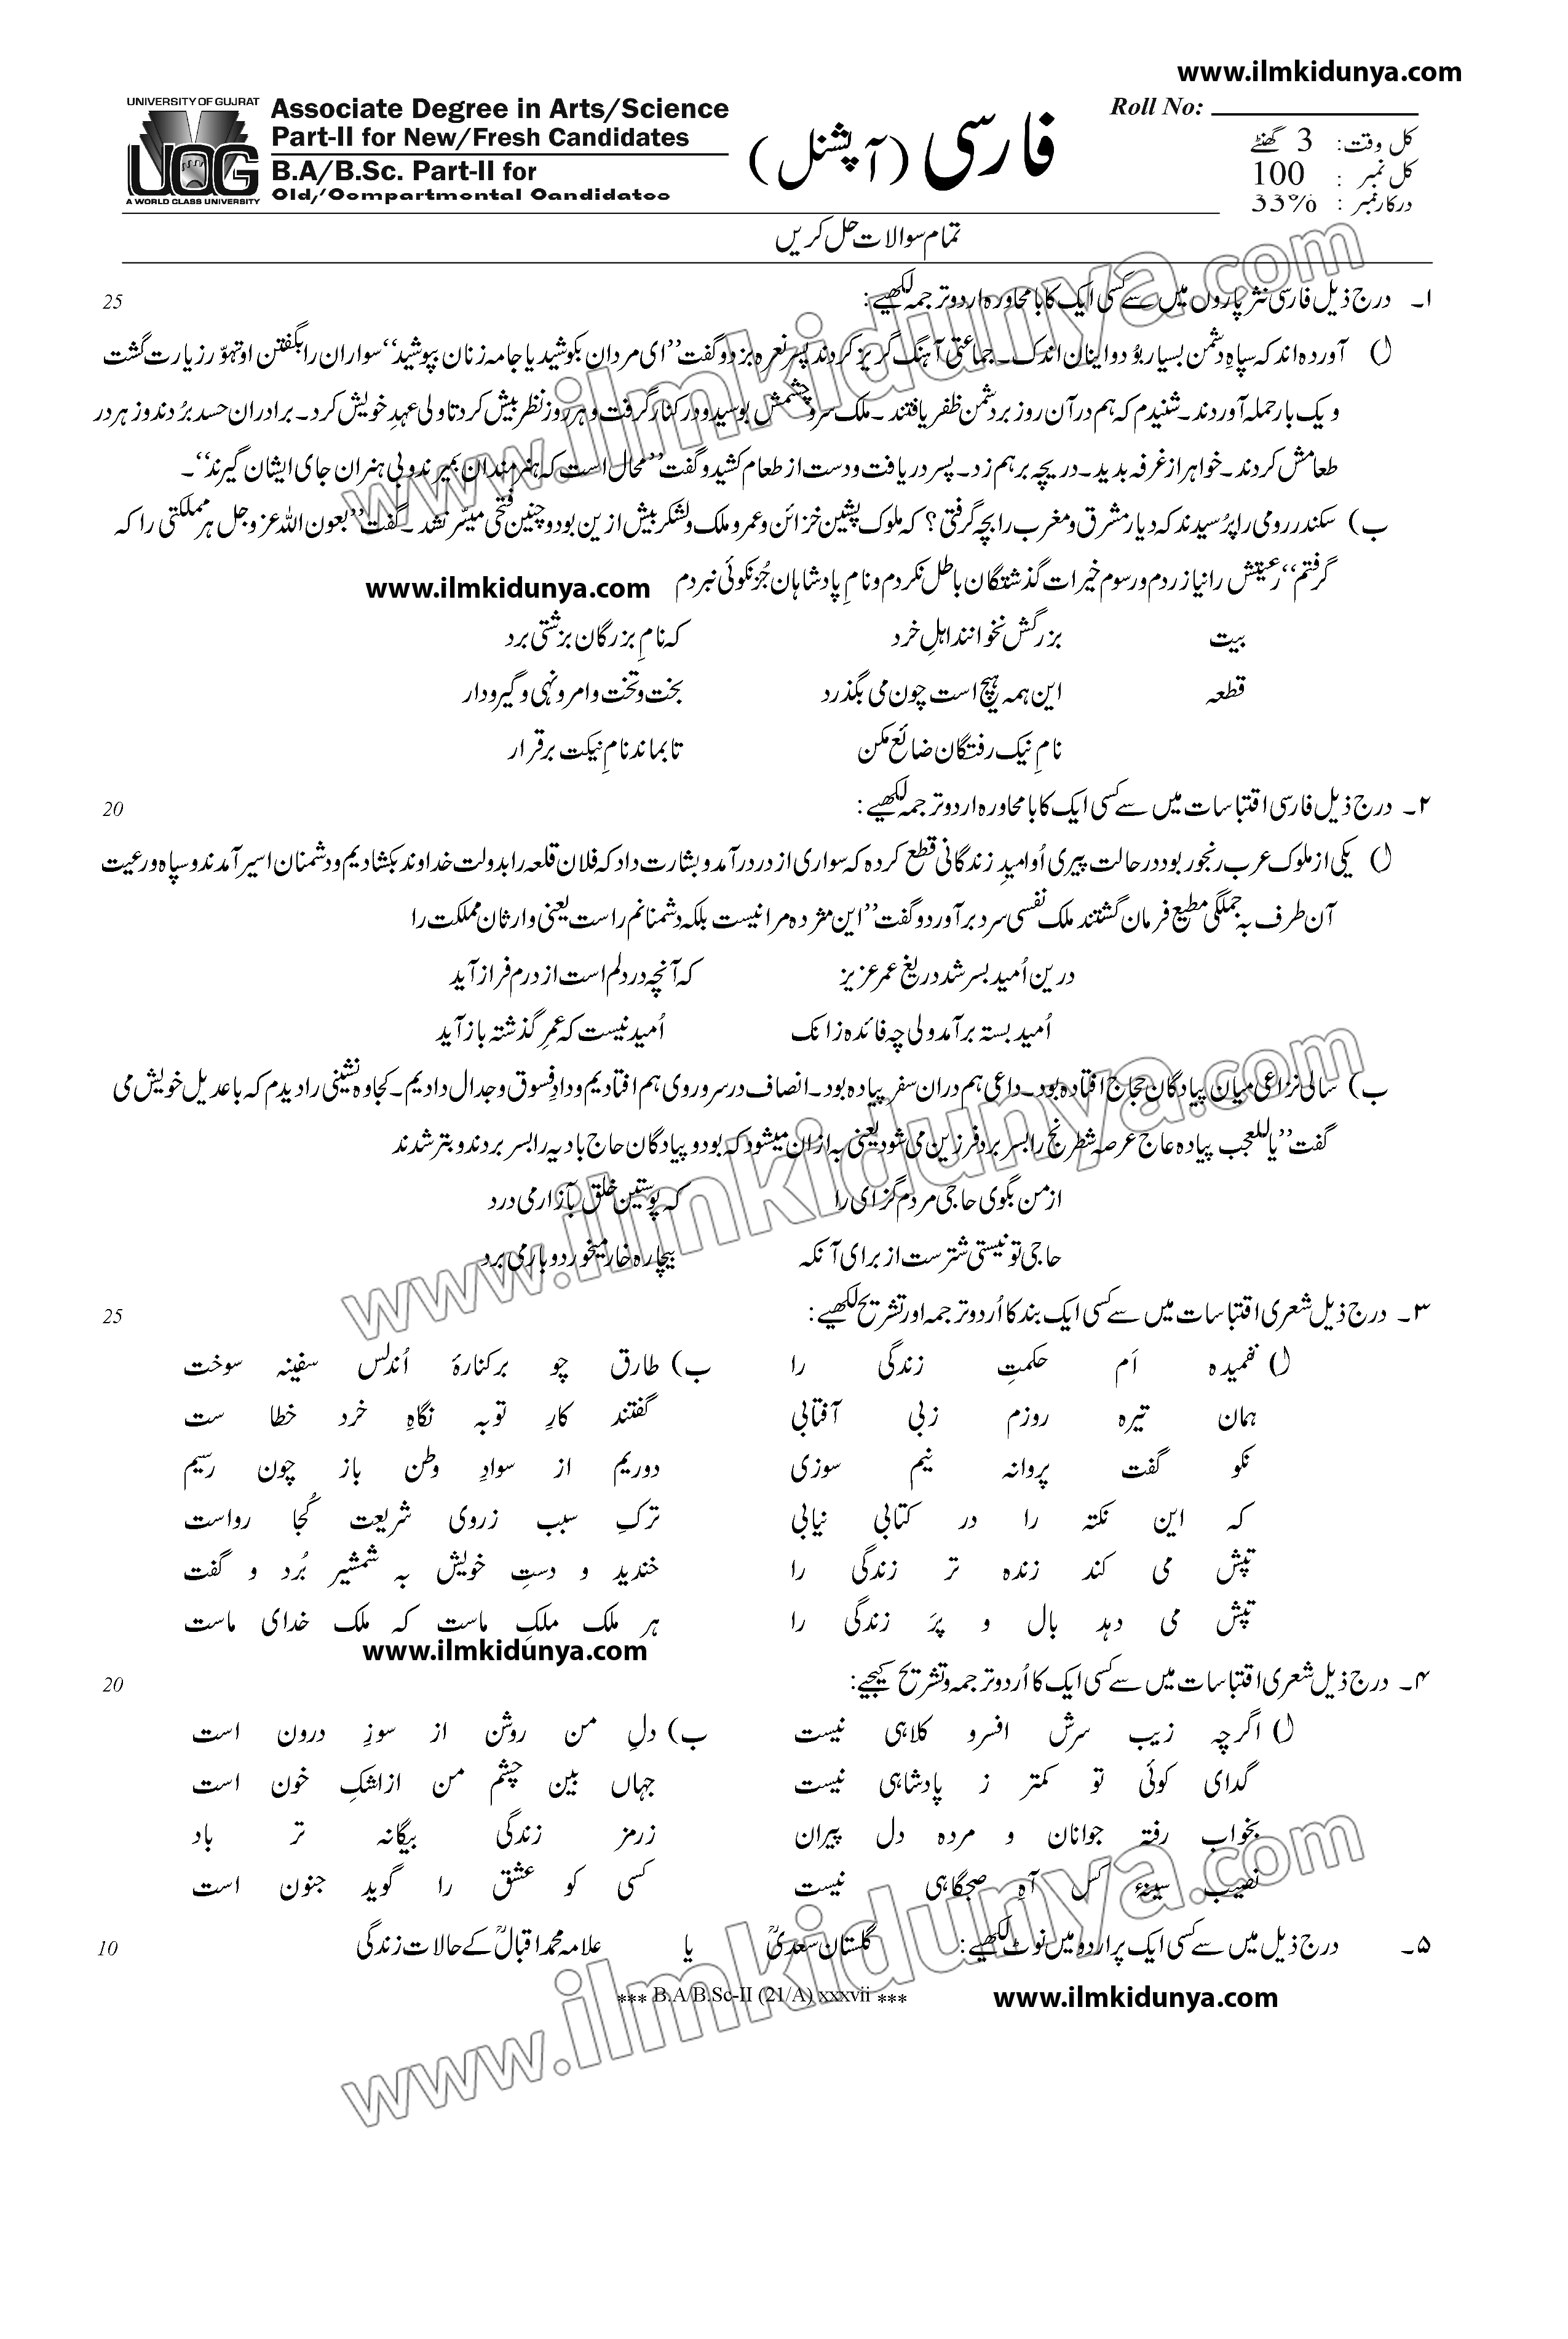 www.ilmkidunya.com
UNIVERSITY OF GUJRAT
UOG
A WORLD CLASS UNIVERSITY
Associate Degree in Arts/Science
Part-II for New/Fresh Candidates
B.A/B.Sc. Part-II for
Old/Compartmental Candidates
فارسی (آپشنل)
Roll No:
کل وقت: 3 گھنٹے
کل نمبر : 100
درکار نمبر : 33%
تمام سوالات حل کریں
۱۔ درج ذیل فارسی نثر پاروں میں سے کسی ایک کا بامحاورہ اردو ترجمہ لکھیے: 25
ا) آوردہ اند کہ سپاہِ دشمن بسیار بوُد و اینان اندک۔ جماعتی آہنگ گریز کردند پسر نعرہ بزد و گفت ’’ای مردان بکوشید یا جامہ زنان بپوشید‘‘ سواران را بگفتن او تہوّر زیارت گشت
و یک بار حملہ آوردند۔ شنیدم کہ ہم در آن روز بر دشمن ظفر یافتند ۔ ملک سر و چشمش بوسید و در کنار گرفت و ہر روز نظر بیش کرد تا ولی عہدِ خویش کرد۔ برادران حسد برُدند و زہر در
طعامش کردند۔ خواہر از غرفہ بدید۔ دریچہ برہم زد۔ پسر دریافت و دست از طعام کشید و گفت ’’محال است کہ ہنرمندان بمیرند و بی ہنران جای ایشان گیرند‘‘۔
ب) سکندر رومی را پرُسیدند کہ دیار مشرق و مغرب را بچہ گرفتی؟ کہ ملوک پشین خزائن و عمر و ملک و لشکر بیش ازین بود و چنین فتحی میسّر نشد ۔ گفت ’’بعون اللہ عزوجل ہر مملکتی را کہ
گرفتم‘‘ رعیتش را نیازردم و رسوم خیرات گذشتگان باطل نکردم و نامِ پادشاہان جُز نکوئی نبردم
www.ilmkidunya.com
بیت بزرگش نخوانند اہلِ خرد کہ نامِ بزرگان بزشتی برد
قطعہ این ہمہ ہیچ است چون می بگذرد بخت و تخت و امر و نہی و گیر و دار
نامِ نیک رفتگان ضائع مکن تا بماند نامِ نیکت برقرار
۲۔ درج ذیل فارسی اقتباسات میں سے کسی ایک کا بامحاورہ اردو ترجمہ لکھیے: 20
ا) یکی از ملوک عرب رنجور بود در حالت پیری اُو امیدِ زندگانی قطع کردہ کہ سواری از در در آمد و بشارت داد کہ فلان قلعہ را بدولت خداوند بکشادیم و دشمنان اسیر آمدند و سپاہ و رعیت
آن طرف بہ جملگی مطیع فرمان گشتند ملک نفسی سرد برآورد و گفت ’’این مژدہ مرا نیست بلکہ دشمنانم راست یعنی وارثان مملکت را
درین اُمید بسر شد دریغ عمر عزیز کہ آنچہ در دلم است از درم فراز آید
اُمید بستہ برآمد ولی چہ فائدہ زانک اُمید نیست کہ عمرِ گذشتہ باز آید
ب) سالی نزاعی میان پیادگان حجاج افتادہ بود۔ داعی ہم دران سفر پیادہ بود۔ انصاف در سر و روی ہم افتادیم و دادِ فسوق و جدال دادیم۔ کجاوہ نشینی را دیدم کہ با عدیل خویش می
گفت ’’یاللعجب پیادہ عاج عرصہ شطرنج را بسر برد فرزین می شود یعنی بہ ازان میشود کہ بود و پیادگان حاج بادیہ را بسر بردند و بتر شدند
از من بگوی حاجی مردم گزای را کہ پوستین خلق بآزار می درد
حاجی تو نیستی شترست از برای آنکہ بیچارہ خار میخورد و بار می برد
۳۔ درج ذیل شعری اقتباسات میں سے کسی ایک بند کا اُردو ترجمہ اور تشریح لکھیے: 25
ا) نفمیدہ اَم حکمتِ زندگی را ب) طارق چو برکنارۂ اُندلس سفینہ سوخت
ہمان تیرہ روزم زبی آفتابی گفتند کارِ توبہ نگاہِ خرد خطا ست
نکو گفت پروانہ نیم سوزی دوریم از سوادِ وطن باز چون رسیم
کہ این نکتہ را در کتابی نیابی ترکِ سبب زروی شریعت کُجا رواست
تپش می کند زندہ تر زندگی را خندید و دستِ خویش بہ شمشیر بُرد و گفت
تپش می دہد بال و پَر زندگی را ہر ملک ملکِ ماست کہ ملک خدای ماست
www.ilmkidunya.com
۴۔ درج ذیل شعری اقتباسات میں سے کسی ایک کا اُردو ترجمہ و تشریح کیجیے: 20
ا) اگرچہ زیب سرش افسرو کلاہی نیست ب) دلِ من روشن از سوزِ درون است
گدای کوئی تو کمتر ز پادشاہی نیست جہاں بین چشم من ازاشکِ خون است
بخواب رفتہ جوانان و مردہ دل پیران زرمز زندگی بیگانہ تر باد
نصیب سینۂ کس آہِ صبحگاہی نیست کسی کو عشق را گوید جنون است
۵۔ درج ذیل میں سے کسی ایک پر اردو میں نوٹ لکھیے: گلستان سعدیؒ یا علامہ محمد اقبالؒ کے حالات زندگی 10
*** B.A/B.Sc-II (21/A) xxxvii ***
www.ilmkidunya.com
www.ilmkidunya.com
www.ilmkidunya.com
www.ilmkidunya.com